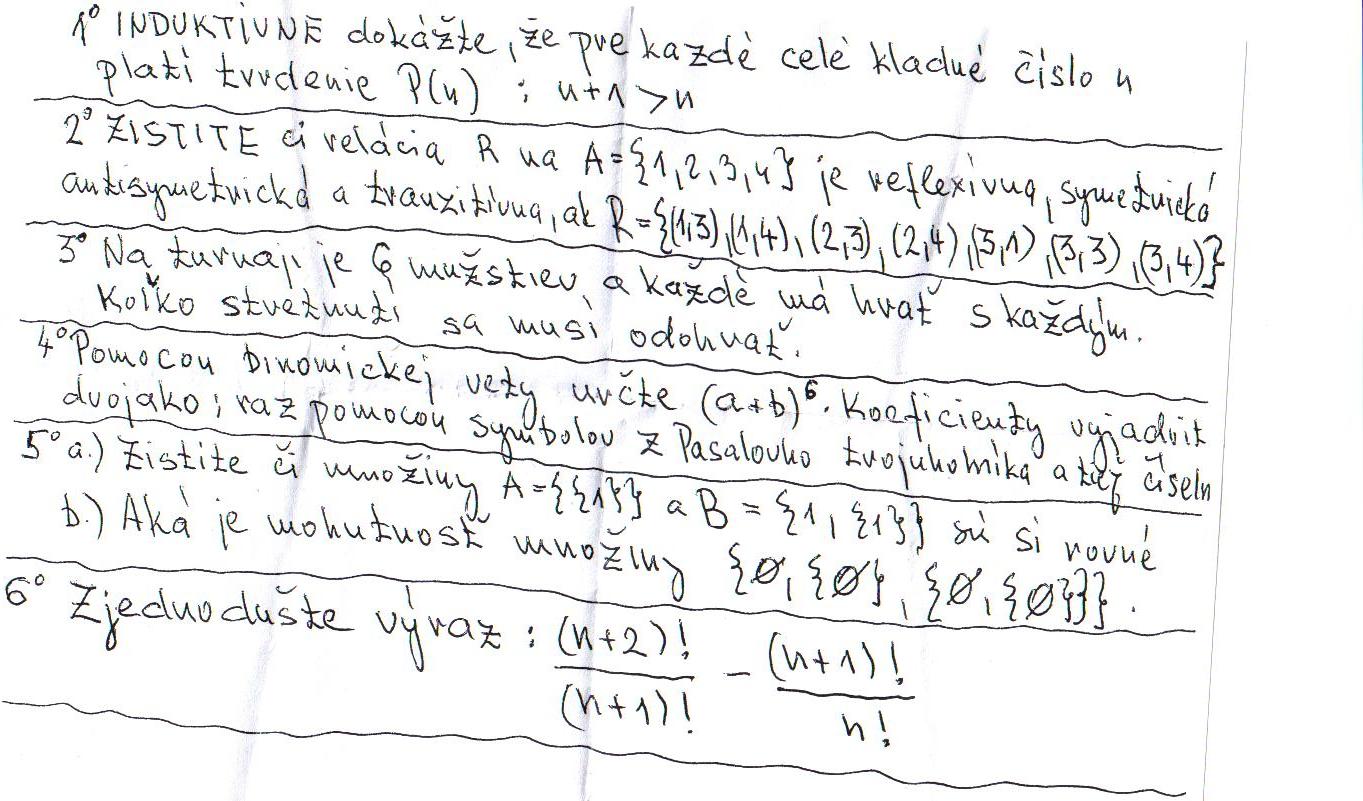 1° INDUKTÍVNE dokážte, že pre kazdé celé kladné číslo n
platí tvrdenie P(n) : n+1 > n
2° ZISTITE či relácia R na A={1,2,3,4} je reflexívna, symetrická
antisymetrická a tranzitívna, ak R={(1,3),(1,4),(2,3),(2,4),(3,1),(3,3),(3,4)}
3° Na turnaji je 6 mužstiev, a každé má hrať s každým.
Koľko stretnutí sa musí odohrať.
4° Pomocou binomickej vety určte (a+b)⁶. Koeficienty vyjadrit
dvojako; raz pomocou symbolov z Pasalovho trojuholnika a tiež číseln
5° a.) Zistite či množiny A={{1}} a B={1,{1}} sú si rovné
b.) Aká je mohutnosť množiny {∅,{∅},{∅,{∅}}}.
6° Zjednodušte výraz : (n+2)!/(n+1)! - (n+1)!/n!